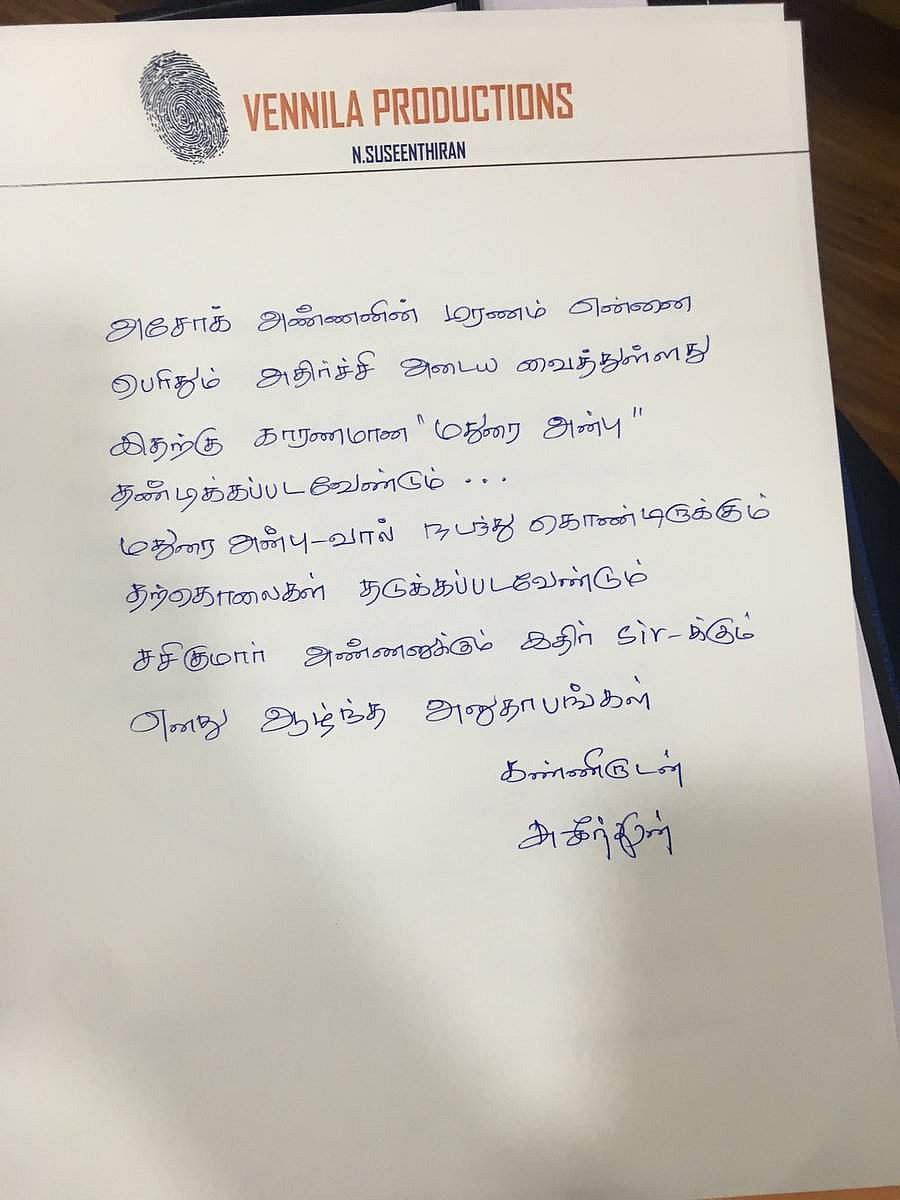 VENNILA PRODUCTIONS
N.SUSEENTHIRAN
அசோக் அண்ணனின் மரணம் என்னை
பெரிதும் அதிர்ச்சி அடைய வைத்துள்ளது
இதற்கு காரணமான "மதுரை அன்பு"
தண்டிக்கப்படவேண்டும் ...
மதுரை அன்பு-வால் நடந்து கொண்டிருக்கும்
தற்கொலைகள் தடுக்கப்படவேண்டும்
சசிகுமார் அண்ணனுக்கும் இதிர் sir-க்கும்
எனது ஆழ்ந்த அனுதாபங்கள்
கண்ணீருடன்